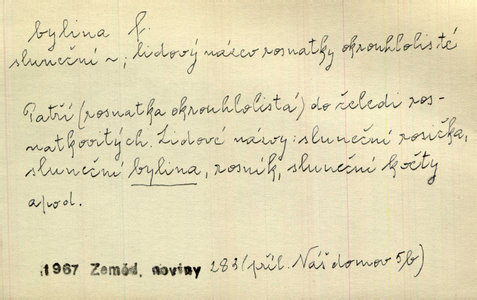 bylina f.
sluneční ~; lidový název rosnatky okrouhlolisté
Patří (rosnatka okrouhlolistá) do čeledi ros-
natkovitých. Lidové názvy: sluneční rosička,
sluneční bylina, rosník, sluneční kočty
apod.
1967 Zeměd. noviny 283 (příl. Náš domov 5/b)